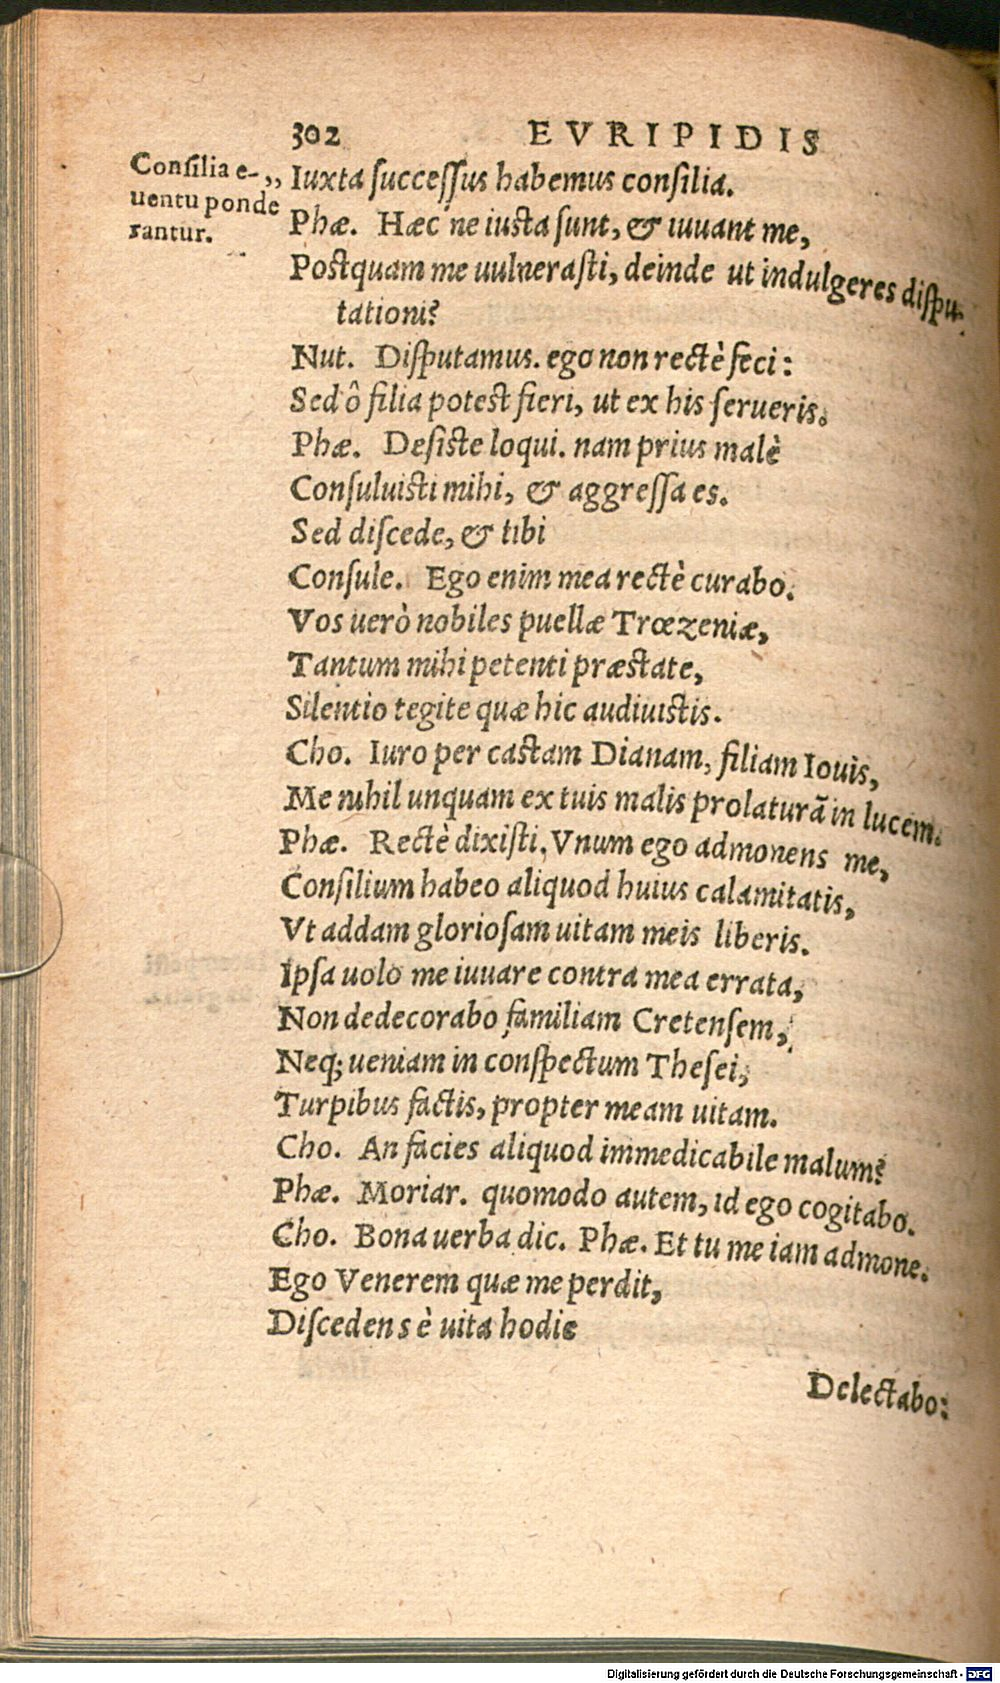 302 EVRIPIDIS
Consilia e-
uentu ponde
rantur.
„Iuxta successus habemus consilia.
Phæ. Hæc'ne iusta sunt, & iuuant me,
Postquam me uulnerasti, deinde ut indulgeres dispu-
tationi?
Nut. Disputamus. ego non rectè feci:
Sed ô filia potest fieri, ut ex his serueris.
Phæ. Desiste loqui. nam prius malè
Consuluisti mihi, & aggressa es.
Sed discede, & tibi
Consule. Ego enim mea rectè curabo.
Vos uerò nobiles puellæ Trœzeniæ,
Tantum mihi petenti præstate,
Silentio tegite quæ hic audiuistis.
Cho. Iuro per castam Dianam, filiam Iouis,
Me nihil unquam ex tuis malis prolaturã in lucem.
Phæ. Rectè dixisti. Vnum ego admonens me,
Consilium habeo aliquod huius calamitatis,
Vt addam gloriosam uitam meis liberis.
Ipsa uolo me iuuare contra mea errata,
Non dedecorabo familiam Cretensem,
Neq; ueniam in conspectum Thesei,
Turpibus factis, propter meam uitam.
Cho. An facies aliquod immedicabile malum?
Phæ. Moriar. quomodo autem, id ego cogitabo.
Cho. Bona uerba dic. Phæ. Et tu me iam admone.
Ego Venerem quæ me perdit,
Discedens è uita hodie
Delectabo:
Digitalisierung gefördert durch die Deutsche Forschungsgemeinschaft - DFG